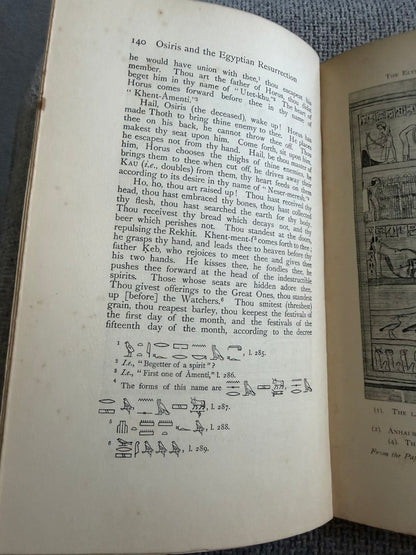 140 Osiris and the Egyptian Resurrection
he would have union with thee,¹ thou escapest his
member. Thou art the father of Horus, thou didst
beget him in thy name of "Utet-khu."² The heart of
Horus comes forward before thee in thy name of
"Khent-Amenti."³
Hail, Osiris (the deceased), wake up! Horus has
made Thoth to bring thine enemy to thee. He places
thee on his back, he cannot throw thee off. Thou
makest thy seat upon him. Come forth, sit upon him,
he escapes not from thy hand. Hail, be thou master of
him, Horus chooses the thighs of thine enemies, he
brings them to thee when cut off, he drives away their
KAU (i.e., doubles) from them, thy heart feeds on them
according to its desire in thy name of "Neser-meresh."⁴
Ho, ho, thou art raised up! Thou hast received thy
head, thou hast embraced thy bones, thou hast collected
thy flesh, thou hast searched the earth for thy body.
Thou receivest thy bread which decays not, and thy
beer which perishes not. Thou standest at the doors,
repulsing the Rekhit. Khent-ment-f⁵ comes forth to thee;
he grasps thy hand, and leads thee to heaven before thy
father Ḳeb, who rejoices to meet thee and gives thee
his two hands. He kisses thee, he fondles thee, he
pushes thee forward at the head of the indestructible
spirits. Those whose seats are hidden adore thee.
Thou givest offerings to the Great Ones, thou standest
up [before] the Watchers.⁶ Thou smitest (threshest)
grain, thou reapest barley, thou keepest the festivals of
the first day of the month, and the festivals of the
fifteenth day of the month, according to the decree
1 , l. 285.
2 I.e., "Begetter of a spirit"?
3 I.e., "First one of Amenti," l. 286.
4 The forms of this name are
, l. 287.
5 , l. 288.
6 , l. 289.
The
(1). The
(2) Anhau
(4). Th
From the Pap